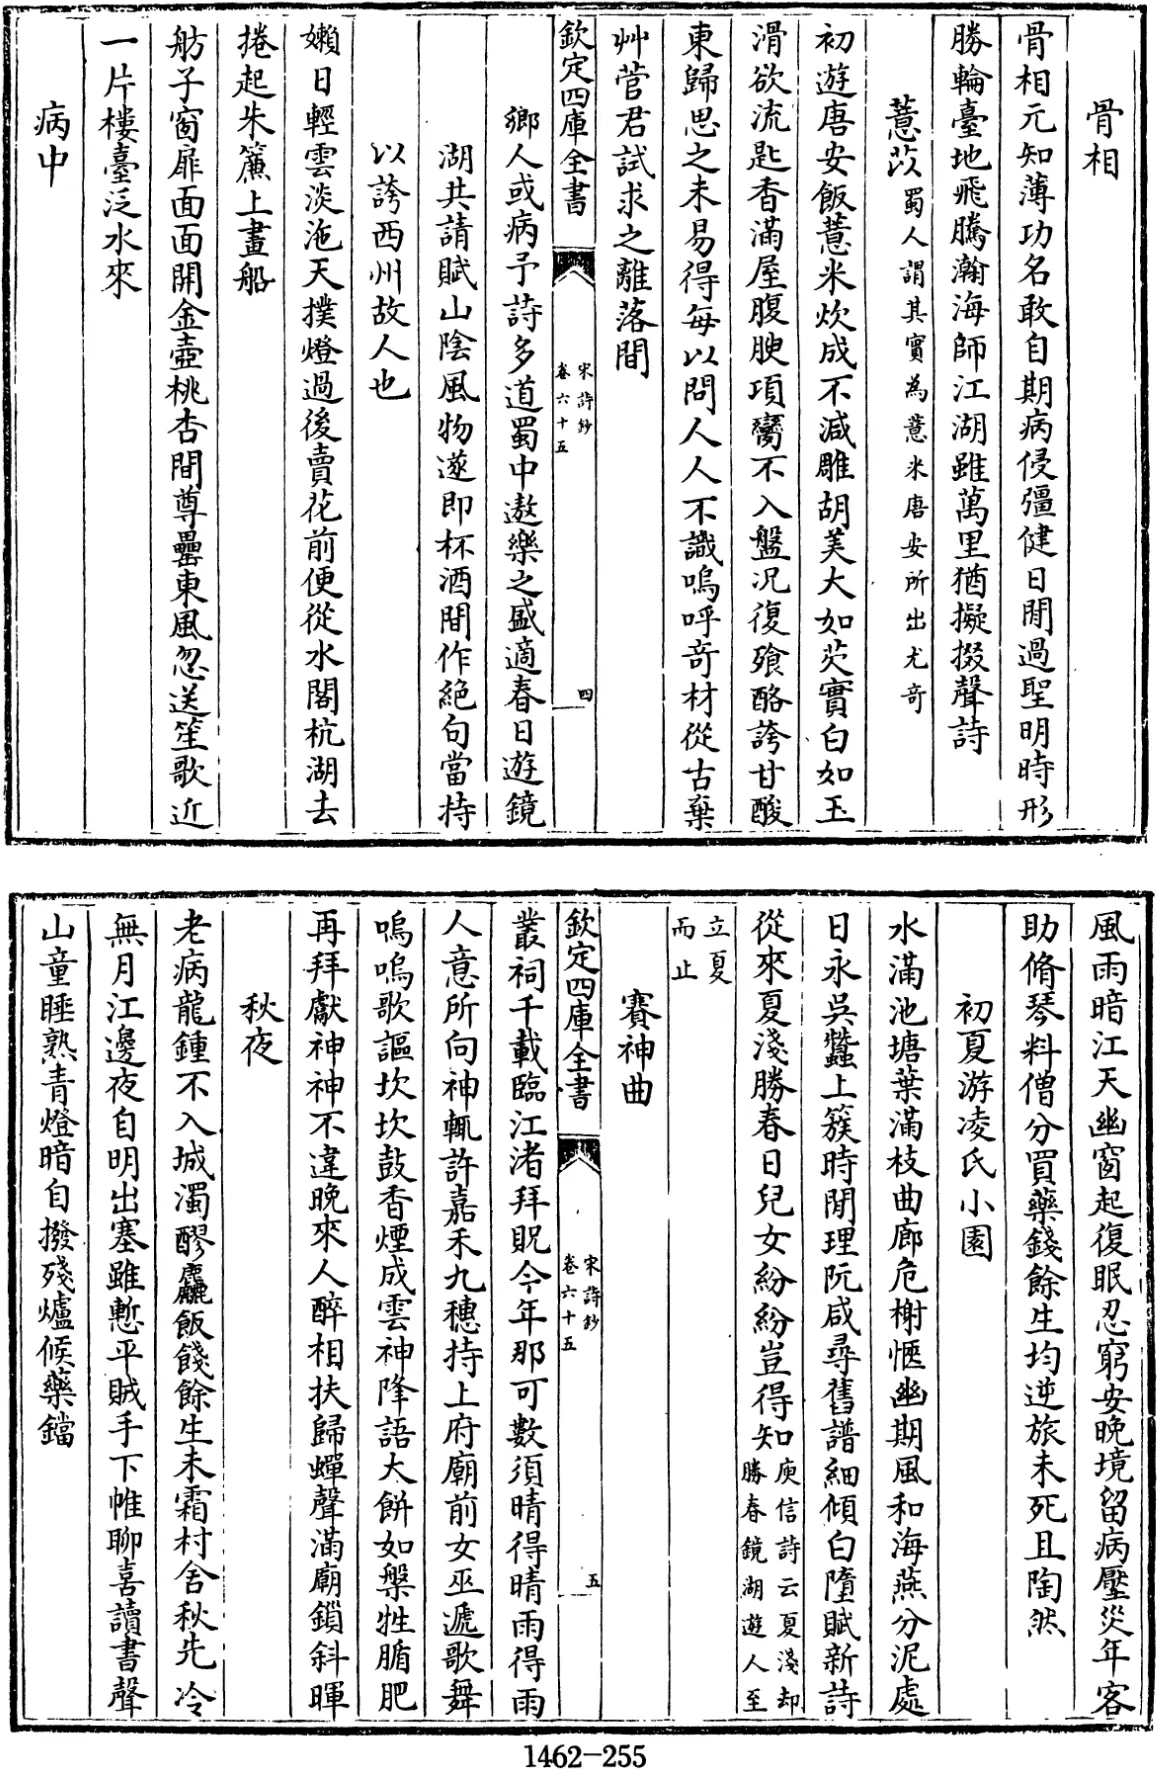 骨相
骨相元知薄功名敢自期病侵彊健日閒過聖明時形
勝輪臺地飛騰瀚海師江湖雖萬里猶擬掇聲詩
薏苡蜀人謂其實為薏米唐安所出尤奇
初遊唐安飯薏米炊成不減雕胡美大如芡實白如玉
滑欲流匙香滿屋腹腴項臠不入盤況復飱酪誇甘酸
東歸思之未易得每以問人人不識嗚呼奇材從古棄
艸菅君試求之籬落間
欽定四庫全書
宋詩鈔
卷六十五
四
鄉人或病予詩多道蜀中遨樂之盛適春日遊鏡
湖共請賦山陰風物遂即杯酒間作絕句當持
以誇西州故人也
嬾日輕雲淡沲天撲燈過後賣花前便從水閣杭湖去
捲起朱簾上畫船
舫子窗扉面面開金壺桃杏間尊罍東風忽送笙歌近
一片樓臺泛水來
病中
風雨暗江天幽窗起復眠忍窮安晚境留病壓災年客
助脩琴料僧分買藥錢餘生均逆旅未死且陶然
初夏游凌氏小園
水滿池塘葉滿枝曲廊危榭愜幽期風和海燕分泥處
日永吳蠶上簇時閒理阮咸尋舊譜細傾白墮賦新詩
從來夏淺勝春日兒女紛紛豈得知庾信詩云夏淺却
勝春鏡湖遊人至
立夏
而止
賽神曲
欽定四庫全書
宋詩鈔
卷六十五
五
叢祠千載臨江渚拜貺今年那可數須晴得晴雨得雨
人意所向神輒許嘉禾九穗持上府廟前女巫遞歌舞
嗚嗚歌謳坎坎鼓香煙成雲神降語大餅如槃牲腯肥
再拜獻神神不違晚來人醉相扶歸蟬聲滿廟鎖斜暉
秋夜
老病龍鍾不入城濁醪麤飯餞餘生未霜村舍秋先冷
無月江邊夜自明出塞雖慙平賊手下帷聊喜讀書聲
山童睡熟青燈暗自撥殘爐候藥鐺
1462—255